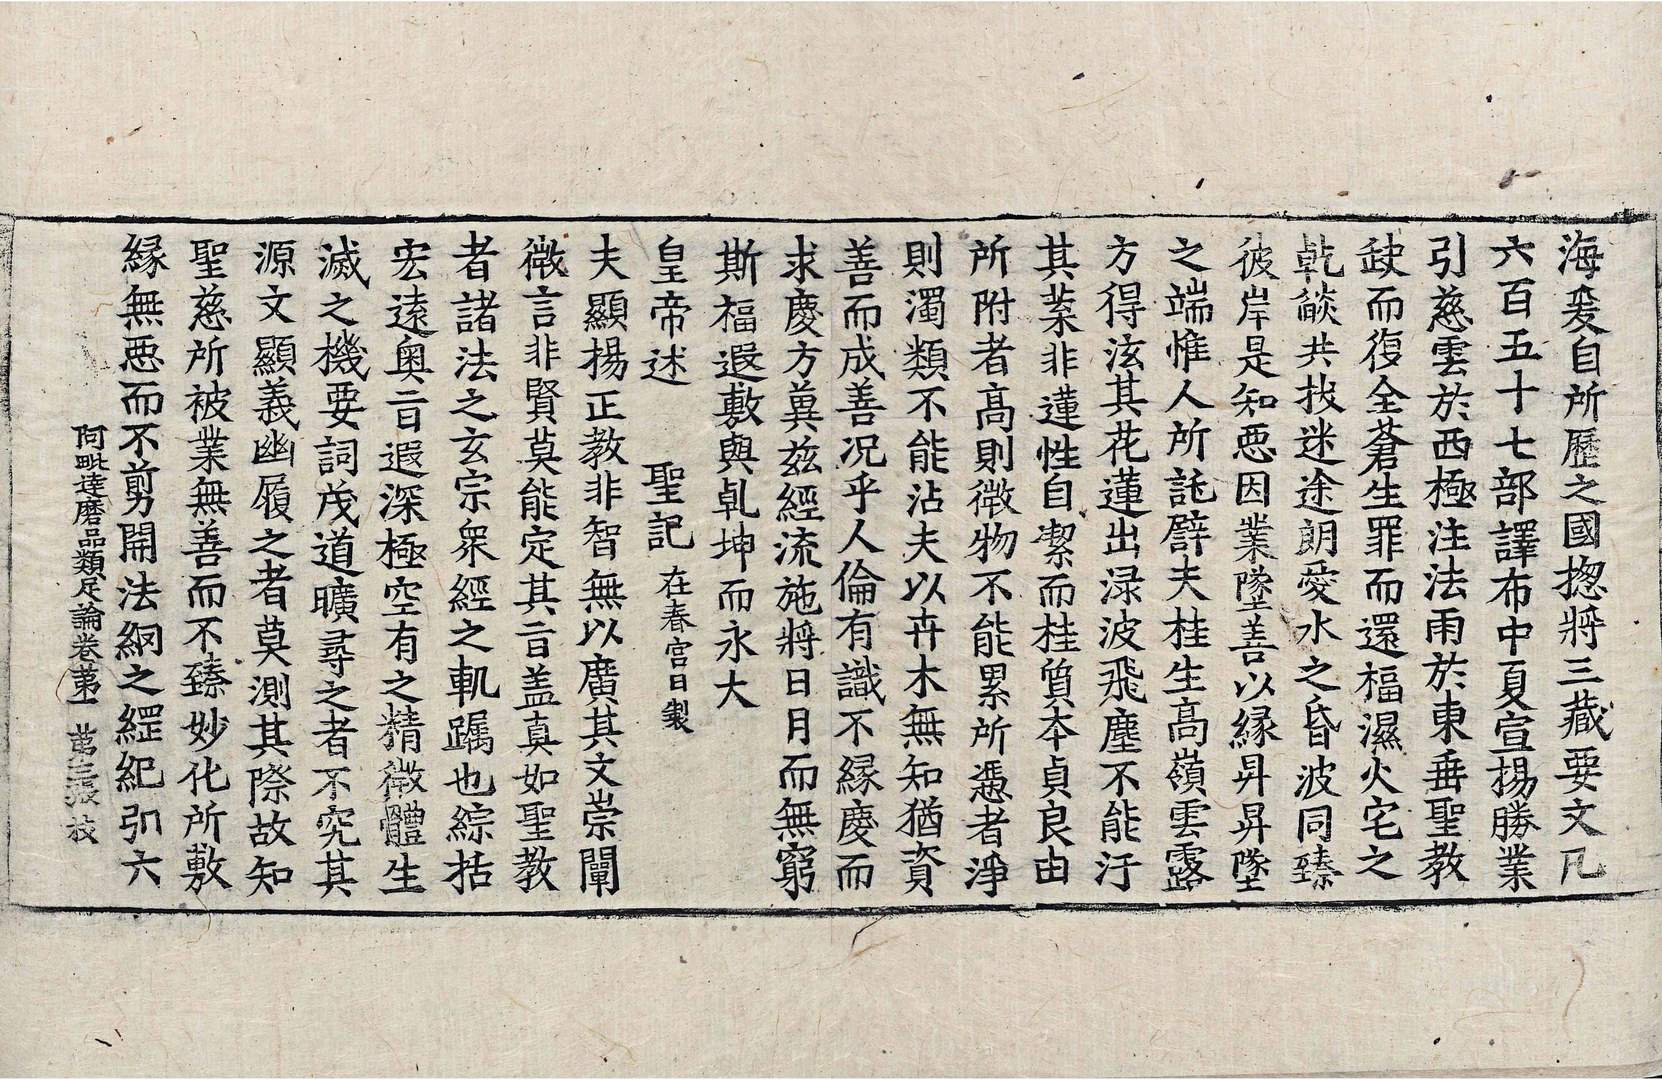 海爰自所歷之國捴將三藏要文凡
六百五十七部譯布中夏宣揚勝業
引慈雲於西極注法雨於東垂聖教
缺而復全蒼生罪而還福濕火宅之
乾燄共拔迷途朗愛水之昏波同臻
彼岸是知惡因業墜善以緣昇昇墜
之端惟人所託譬夫桂生高嶺雲露
方得泫其花蓮出淥波飛塵不能汙
其葉非蓮性自潔而桂質本貞良由
所附者高則微物不能累所憑者淨
則濁類不能沾夫以卉木無知猶資
善而成善況乎人倫有識不緣慶而
求慶方兾茲經流施將日月而無窮
斯福遐敷與乹坤而永大
皇帝述 聖記 在春宮日製
夫顯揚正教非智無以廣其文崇闡
微言非賢莫能定其旨盖真如聖教
者諸法之玄宗衆經之軌躅也綜括
宏遠奧旨遐深極空有之精微體生
滅之機要詞茂道曠尋之者不究其
源文顯義幽履之者莫測其際故知
聖慈所被業無善而不臻妙化所敷
緣無惡而不剪開法網之綱紀弘六
阿毗達磨品類足論卷第一 第三張 枝